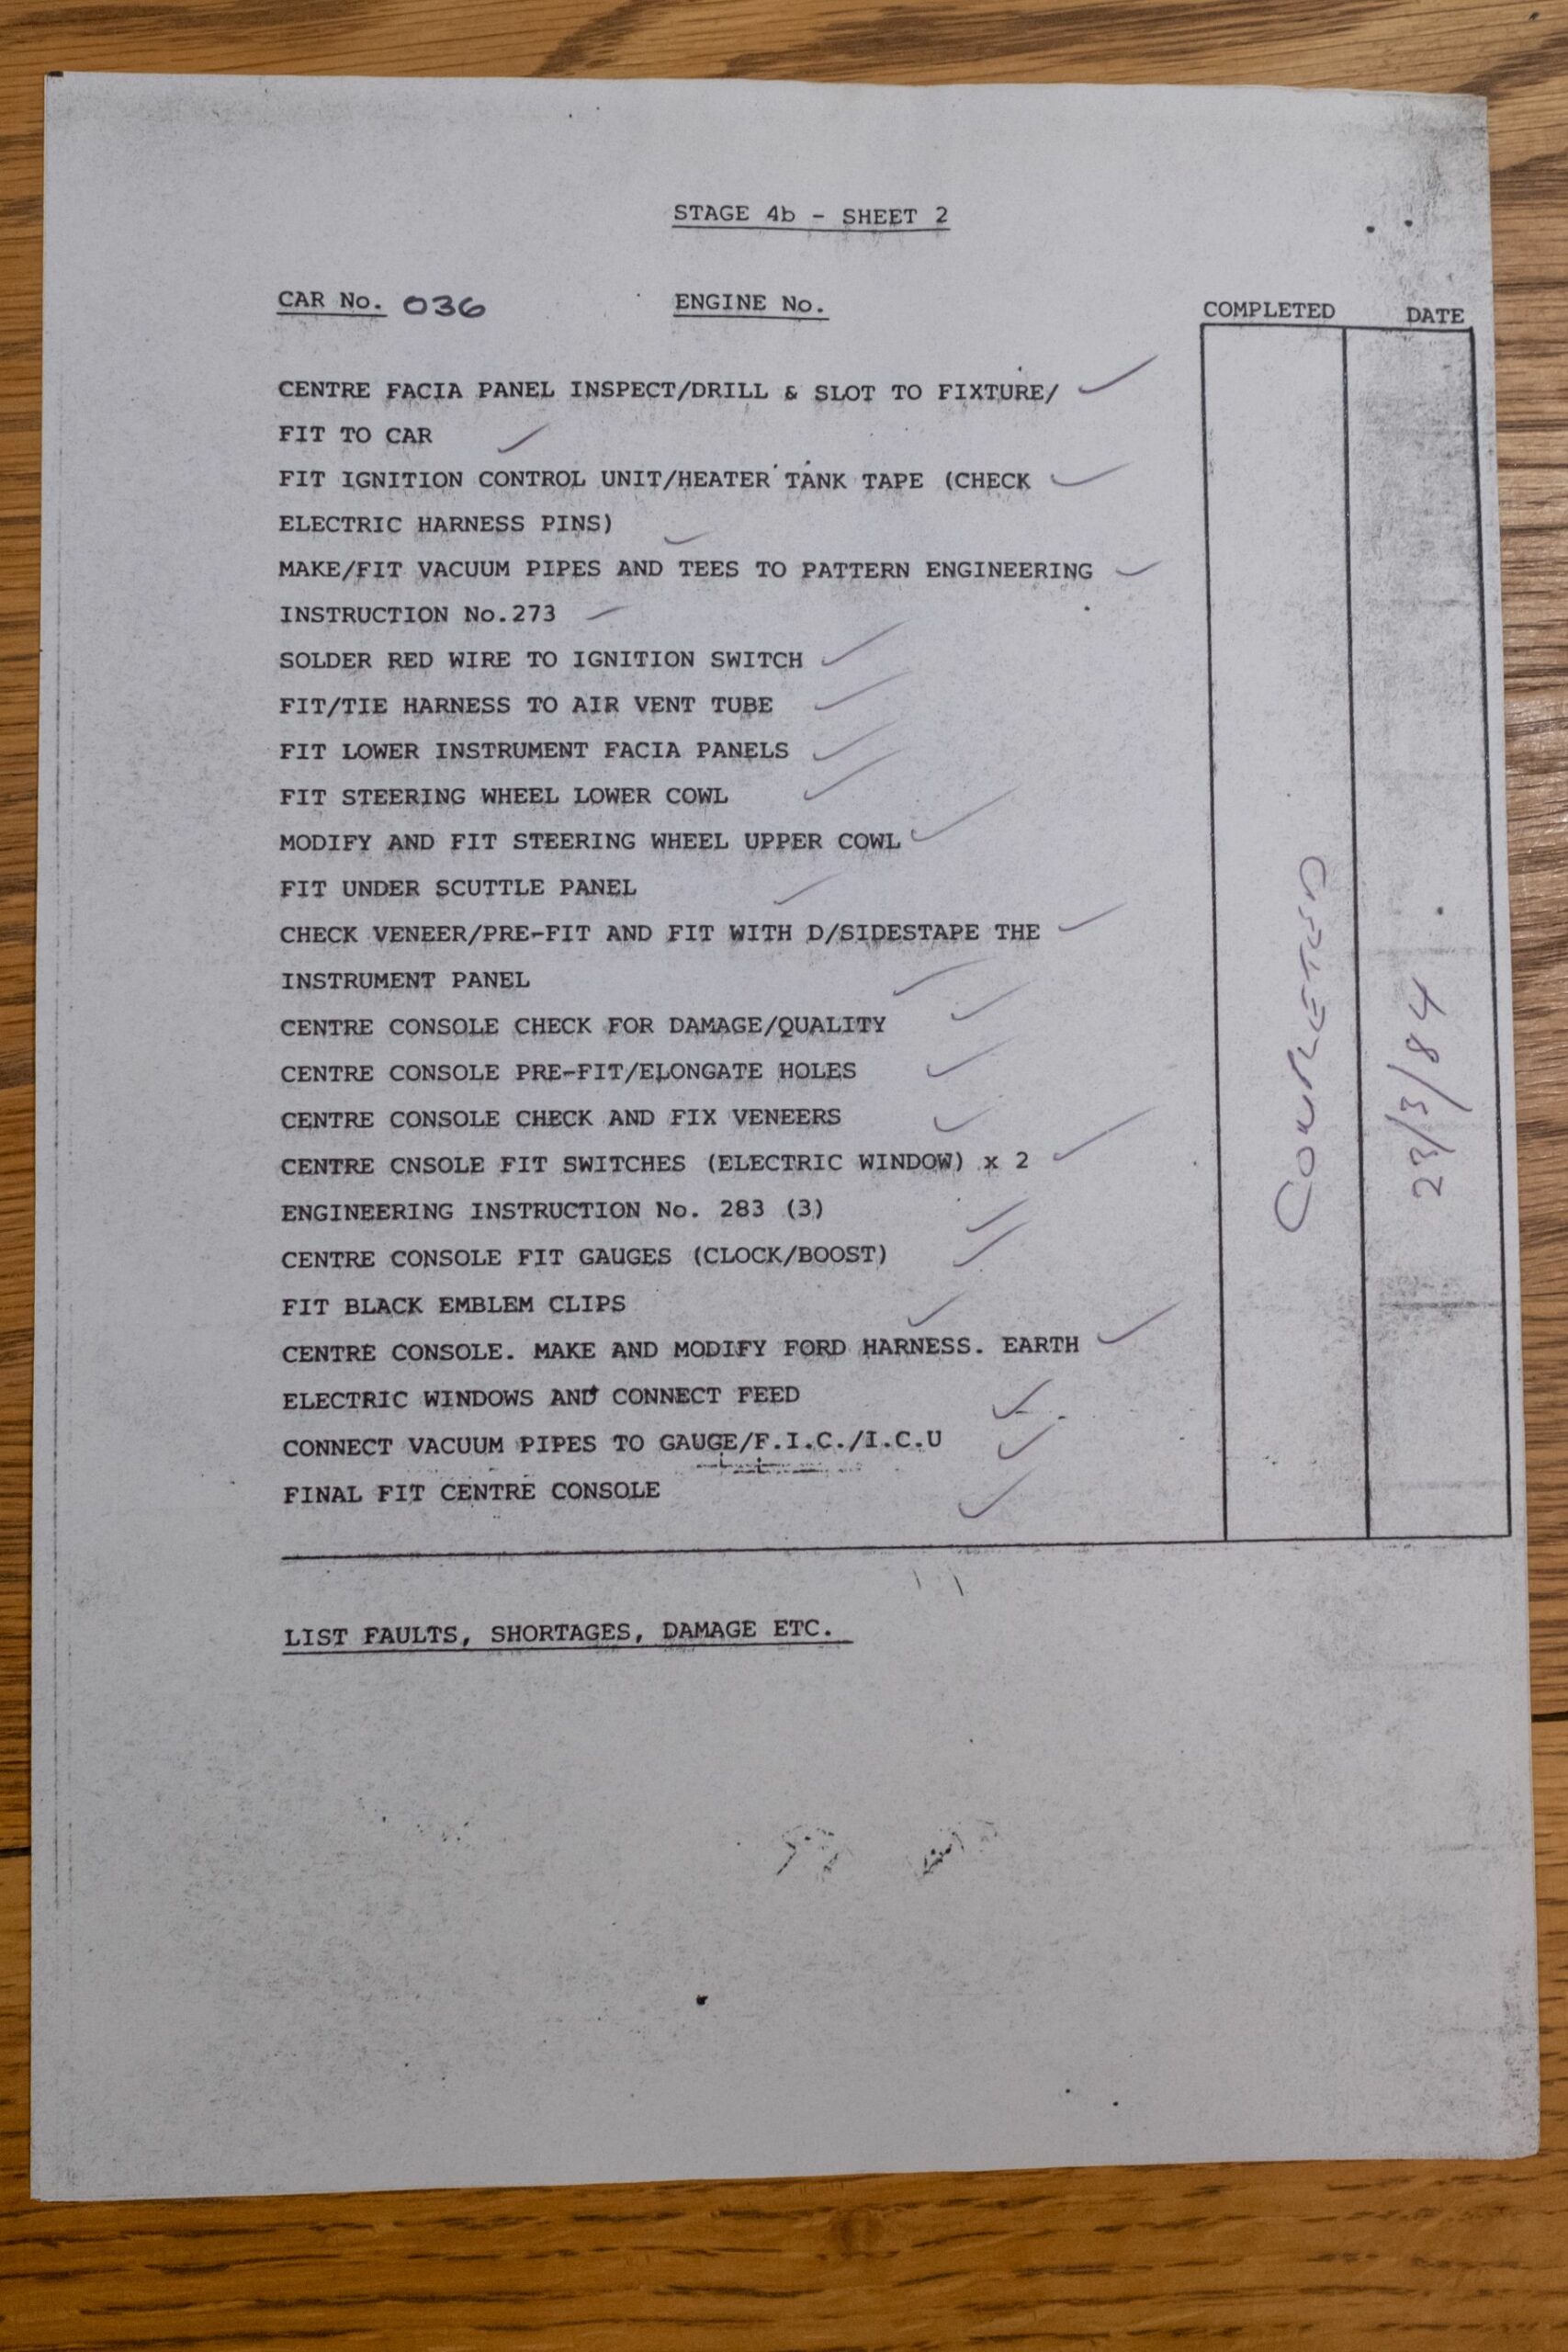 STAGE 4b - SHEET 2
CAR No. 036 ENGINE No.
COMPLETED DATE
CENTRE FACIA PANEL INSPECT/DRILL & SLOT TO FIXTURE/ ✓
FIT TO CAR ✓
FIT IGNITION CONTROL UNIT/HEATER TANK TAPE (CHECK ✓
ELECTRIC HARNESS PINS) ✓
MAKE/FIT VACUUM PIPES AND TEES TO PATTERN ENGINEERING ✓
INSTRUCTION No.273 ✓
SOLDER RED WIRE TO IGNITION SWITCH ✓
FIT/TIE HARNESS TO AIR VENT TUBE ✓
FIT LOWER INSTRUMENT FACIA PANELS ✓
FIT STEERING WHEEL LOWER COWL ✓
MODIFY AND FIT STEERING WHEEL UPPER COWL ✓
FIT UNDER SCUTTLE PANEL ✓
CHECK VENEER/PRE-FIT AND FIT WITH D/SIDESTAPE THE ✓
INSTRUMENT PANEL ✓
CENTRE CONSOLE CHECK FOR DAMAGE/QUALITY ✓
CENTRE CONSOLE PRE-FIT/ELONGATE HOLES ✓
CENTRE CONSOLE CHECK AND FIX VENEERS ✓
CENTRE CNSOLE FIT SWITCHES (ELECTRIC WINDOW) x 2 ✓
ENGINEERING INSTRUCTION No. 283 (3) ✓
CENTRE CONSOLE FIT GAUGES (CLOCK/BOOST) ✓
FIT BLACK EMBLEM CLIPS ✓
CENTRE CONSOLE. MAKE AND MODIFY FORD HARNESS. EARTH ✓
ELECTRIC WINDOWS AND CONNECT FEED ✓
CONNECT VACUUM PIPES TO GAUGE/F.I.C./I.C.U ✓
FINAL FIT CENTRE CONSOLE ✓
COMPLETED
23/3/84
LIST FAULTS, SHORTAGES, DAMAGE ETC.